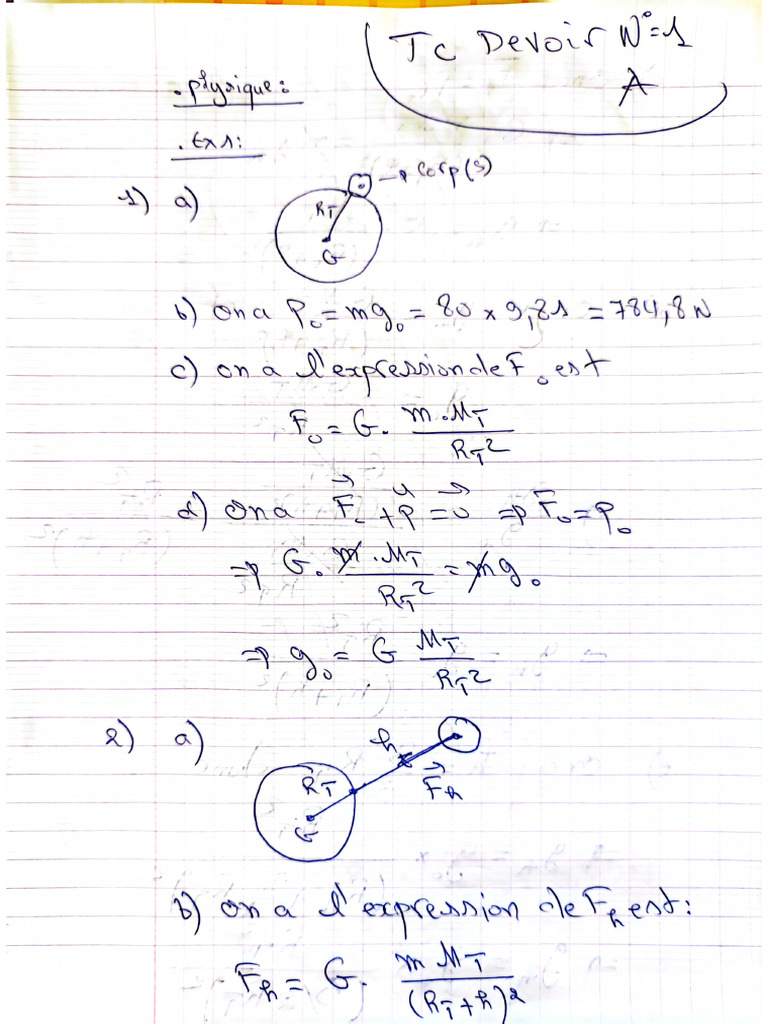 Tc Devoir N°=1
A
. physique :
. Ex 1 :
1) a)
→ corp (s)
R_T
G
b) on a P₀ = mg₀ = 80 × 9,81 = 784,8 N
c) on a l'expression de F₀ est
F₀ = G . m . M_T / R_T²
d) on a F⃗ + P⃗ = 0⃗ ⇒ F₀ = P₀
⇒ G . m . M_T / R_T² = mg₀
⇒ g₀ = G M_T / R_T²
2) a)
h
R_T
F⃗_h
G
b) on a l'expression de F_h est :
F_h = G . m M_T / (R_T + h)²